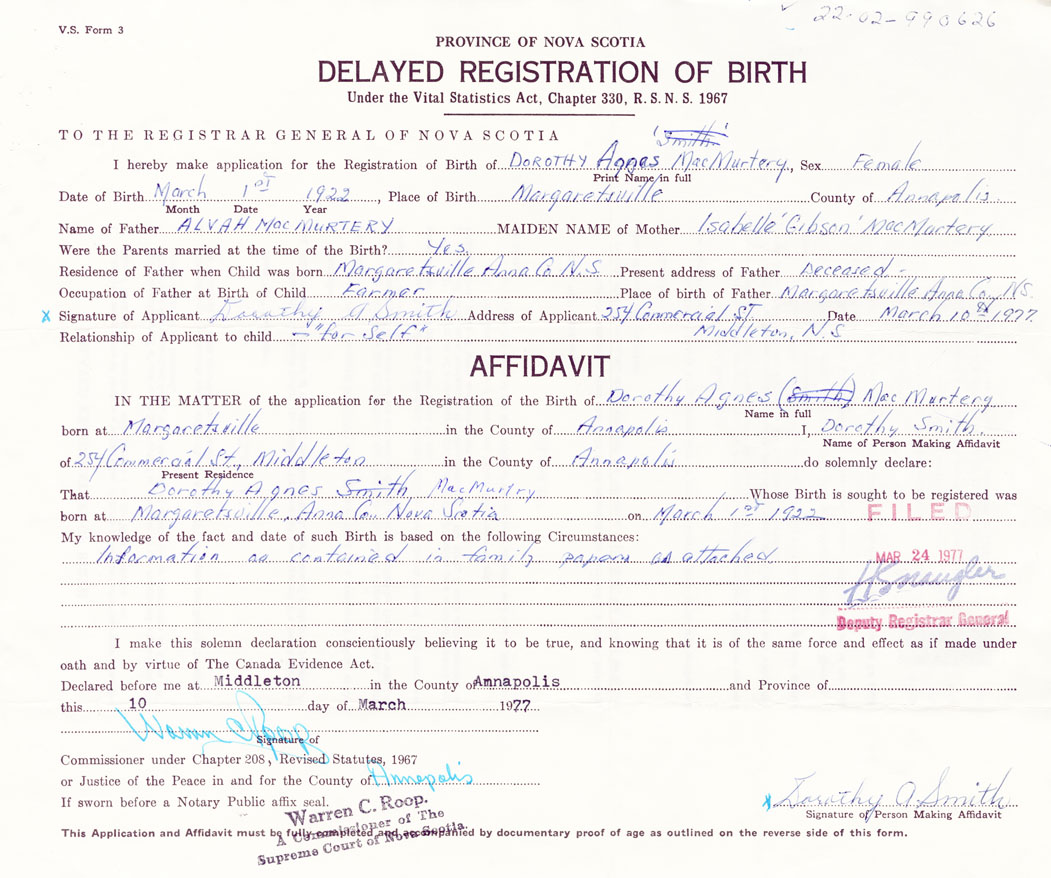 V.S. Form 3
22-02-990626
PROVINCE OF NOVA SCOTIA
DELAYED REGISTRATION OF BIRTH
Under the Vital Statistics Act, Chapter 330, R. S. N. S. 1967
TO THE REGISTRAR GENERAL OF NOVA SCOTIA
'Smith'
I hereby make application for the Registration of Birth of DOROTHY Agnes MacMurtery, Sex Female
Print Name in full
Date of Birth March 1st 1922, Place of Birth Margaretsville County of Annapolis.
Month Date Year
Name of Father ALVAH MacMURTERY MAIDEN NAME of Mother Isabelle 'Gibson' MacMurtery
Were the Parents married at the time of the Birth? Yes.
Residence of Father when Child was born Margaretsville Anna Co. N.S. Present address of Father Deceased -
Occupation of Father at Birth of Child Farmer Place of birth of Father Margaretsville Anna Co., N.S.
x Signature of Applicant Dorothy A Smith Address of Applicant 254 Commercial ST Date March 10th 1977
Relationship of Applicant to child - "for Self" Middleton, N.S
AFFIDAVIT
IN THE MATTER of the application for the Registration of the Birth of Dorothy Agnes (Smith) MacMurtery
Name in full
born at Margaretsville in the County of Annapolis I, Dorothy Smith.
Name of Person Making Affidavit
of 254 Commercial St., Middleton in the County of Annapolis do solemnly declare:
Present Residence
That Dorothy Agnes Smith MacMurtry Whose Birth is sought to be registered was
born at Margaretsville, Anna Co., Nova Scotia on March 1st 1922
FILED
My knowledge of the fact and date of such Birth is based on the following Circumstances:
Information as contained in family papers as attached
MAR 24 1977
Deputy Registrar General
I make this solemn declaration conscientiously believing it to be true, and knowing that it is of the same force and effect as if made under
oath and by virtue of The Canada Evidence Act.
Declared before me at Middleton in the County of Annapolis and Province of
this 10 day of March 1977.
Warren C Roop
Signature of
Commissioner under Chapter 208, Revised Statutes, 1967
or Justice of the Peace in and for the County of Annapolis
If sworn before a Notary Public affix seal.
x Dorothy A Smith
Signature of Person Making Affidavit
Warren C. Roop.
A Commissioner of The
Supreme Court of Nova Scotia.
This Application and Affidavit must be fully completed and accompanied by documentary proof of age as outlined on the reverse side of this form.